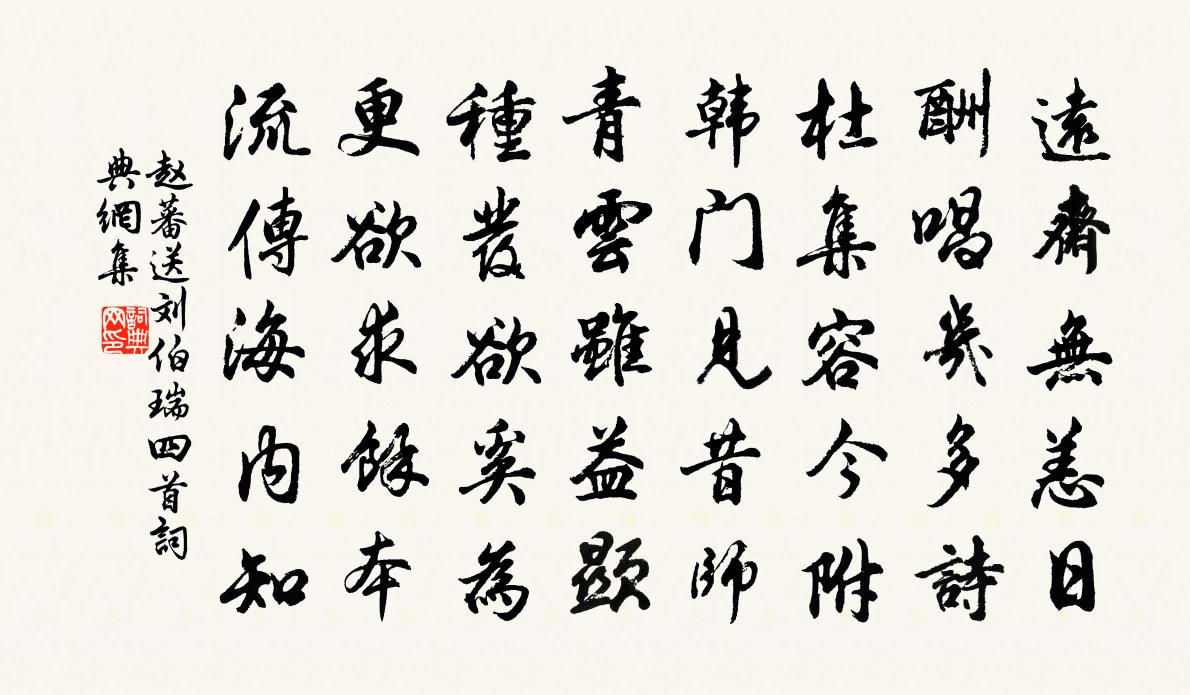 遠齋無恙日
酬唱幾多詩
杜集容今附
韩门見昔師
青雲雖益顯
種發欲奚為
更欲求餘本
流傳海内知
赵蕃送刘伯瑞四首詞
典網集
詞典网印